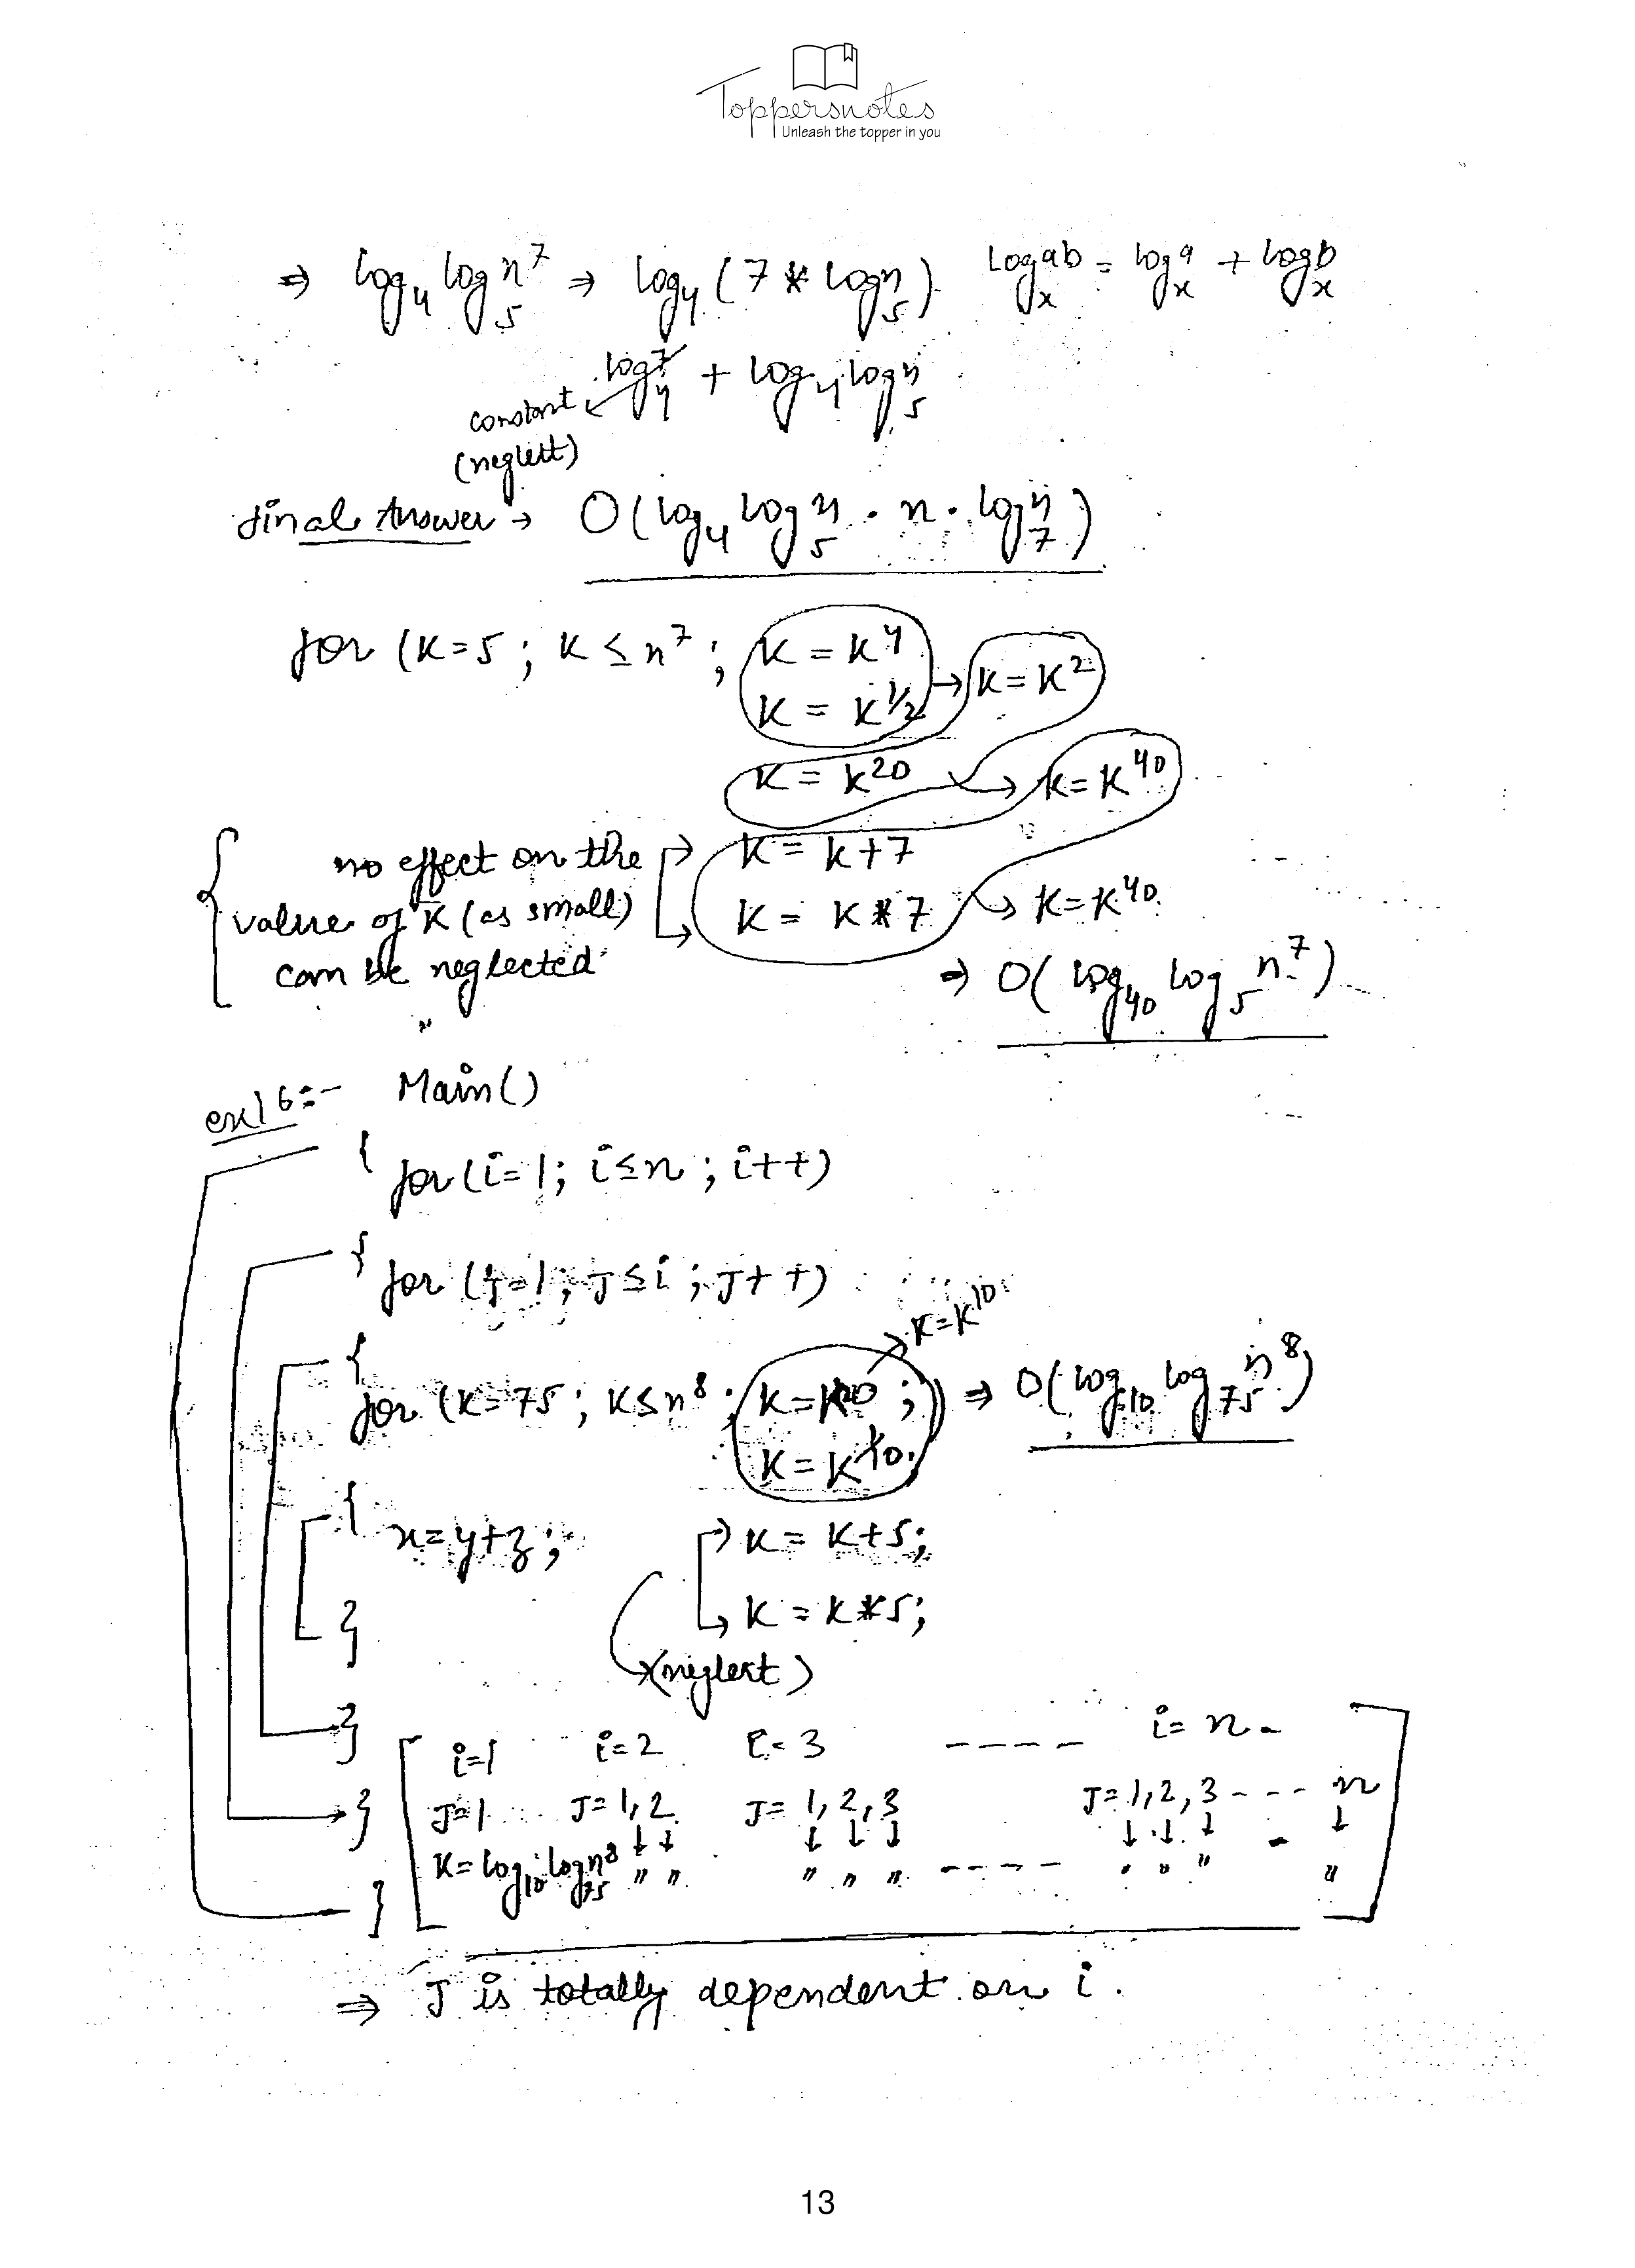 Toppersnotes
Unleash the topper in you
⇒ log₄ log₅ n⁷ ⇒ log₄ (7 * log₅ n) logₓ ab = logₓ a + logₓ b
constant (neglett) ← log₄ 7 + log₄ log₅ n
final Answer → O(log₄ log₅ n · n · log₇ n)
for (K=5 ; K ≤ n⁷ ; K = K⁴
K = K^1/2 → K = K²
K = K²⁰ → K = K⁴⁰
no effect on the → K = K+7
value of K (as small) → K = K * 7 → K = K⁴⁰
can be neglected
⇒ O( log₄₀ log₅ n⁷ )
ex16:- Main()
{ for(i=1; i≤n ; i++)
{ for (j=1; J≤i ; J++)
K=K¹⁰
{ for (K=75 ; K≤n⁸ ; K=K²⁰ ; ) ⇒ O( log₁₀ log₇₅ n⁸ )
{ x=y+z; → K = K+5;
} → K = K*5;
(neglect)
}
i=1 i=2 i=3 ---- i=n
} J=1 J=1,2 J=1,2,3 J=1,2,3 --- n
K=log₁₀ log₇₅ n⁸ " " " " " ---- " " " "
}
⇒ J is totally dependent on i.
13